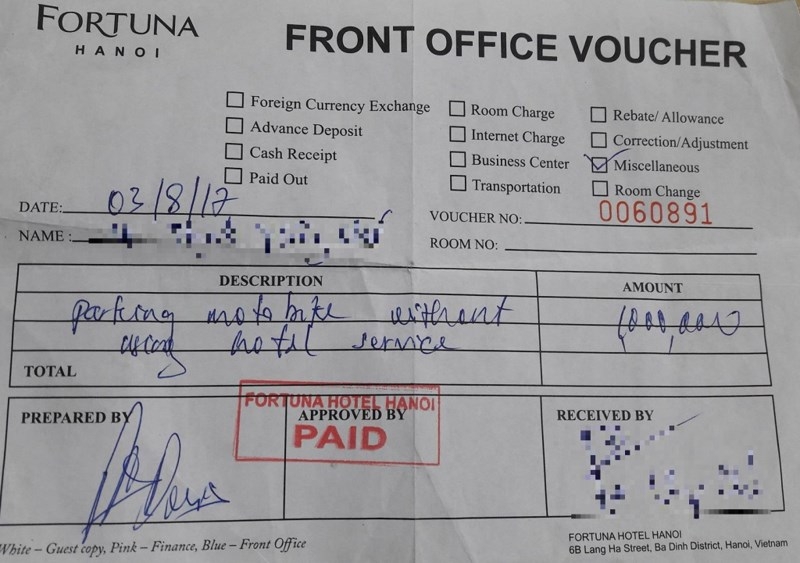 FORTUNA
HANOI
FRONT OFFICE VOUCHER
Foreign Currency Exchange
Advance Deposit
Cash Receipt
Paid Out
Room Charge
Internet Charge
Business Center
Transportation
Rebate/ Allowance
Correction/Adjustment
Miscellaneous
Room Change
DATE: 03/8/17
VOUCHER NO: 0060891
NAME :
ROOM NO:
DESCRIPTION AMOUNT
parking motobike without 1,000,000
using hotel service
TOTAL
PREPARED BY
APPROVED BY
RECEIVED BY
FORTUNA HOTEL HANOI
PAID
White – Guest copy, Pink – Finance, Blue – Front Office
FORTUNA HOTEL HANOI
6B Lang Ha Street, Ba Dinh District, Hanoi, Vietnam